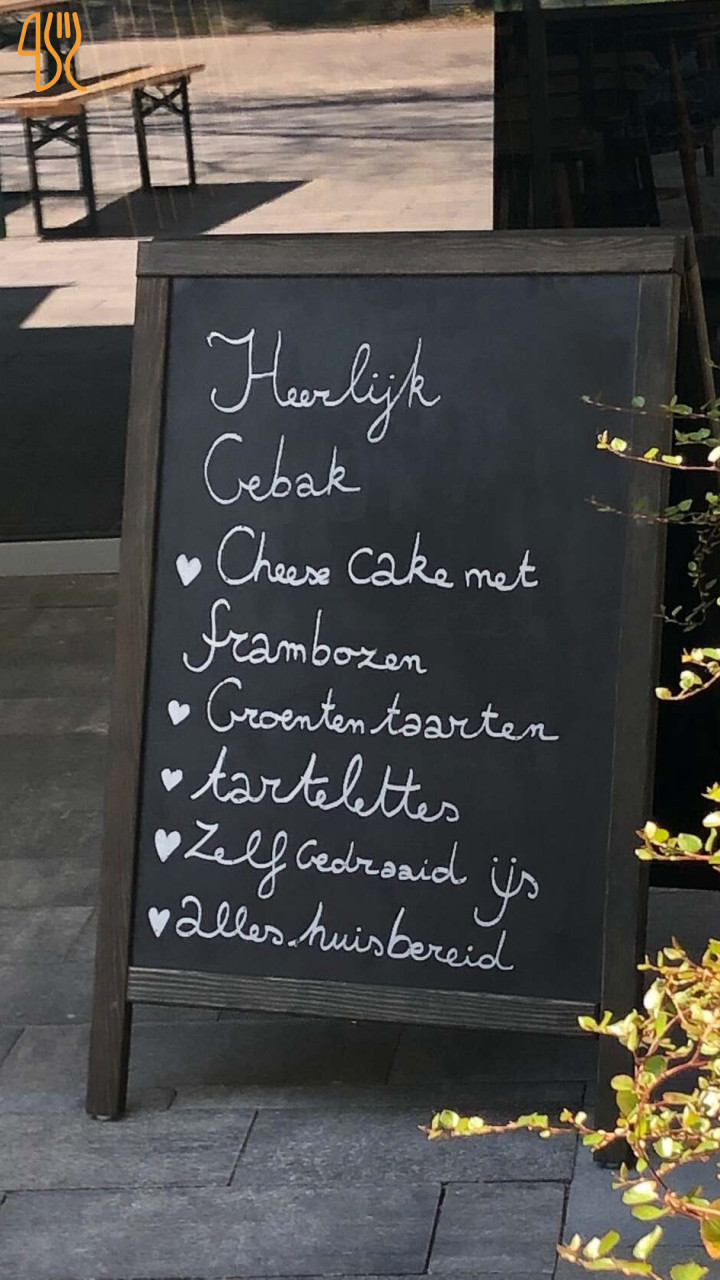 Heerlijk
Gebak
Cheese cake met
frambozen
Groenten taarten
tartelettes
Zelf Gedraaid ijs
alles huisbereid